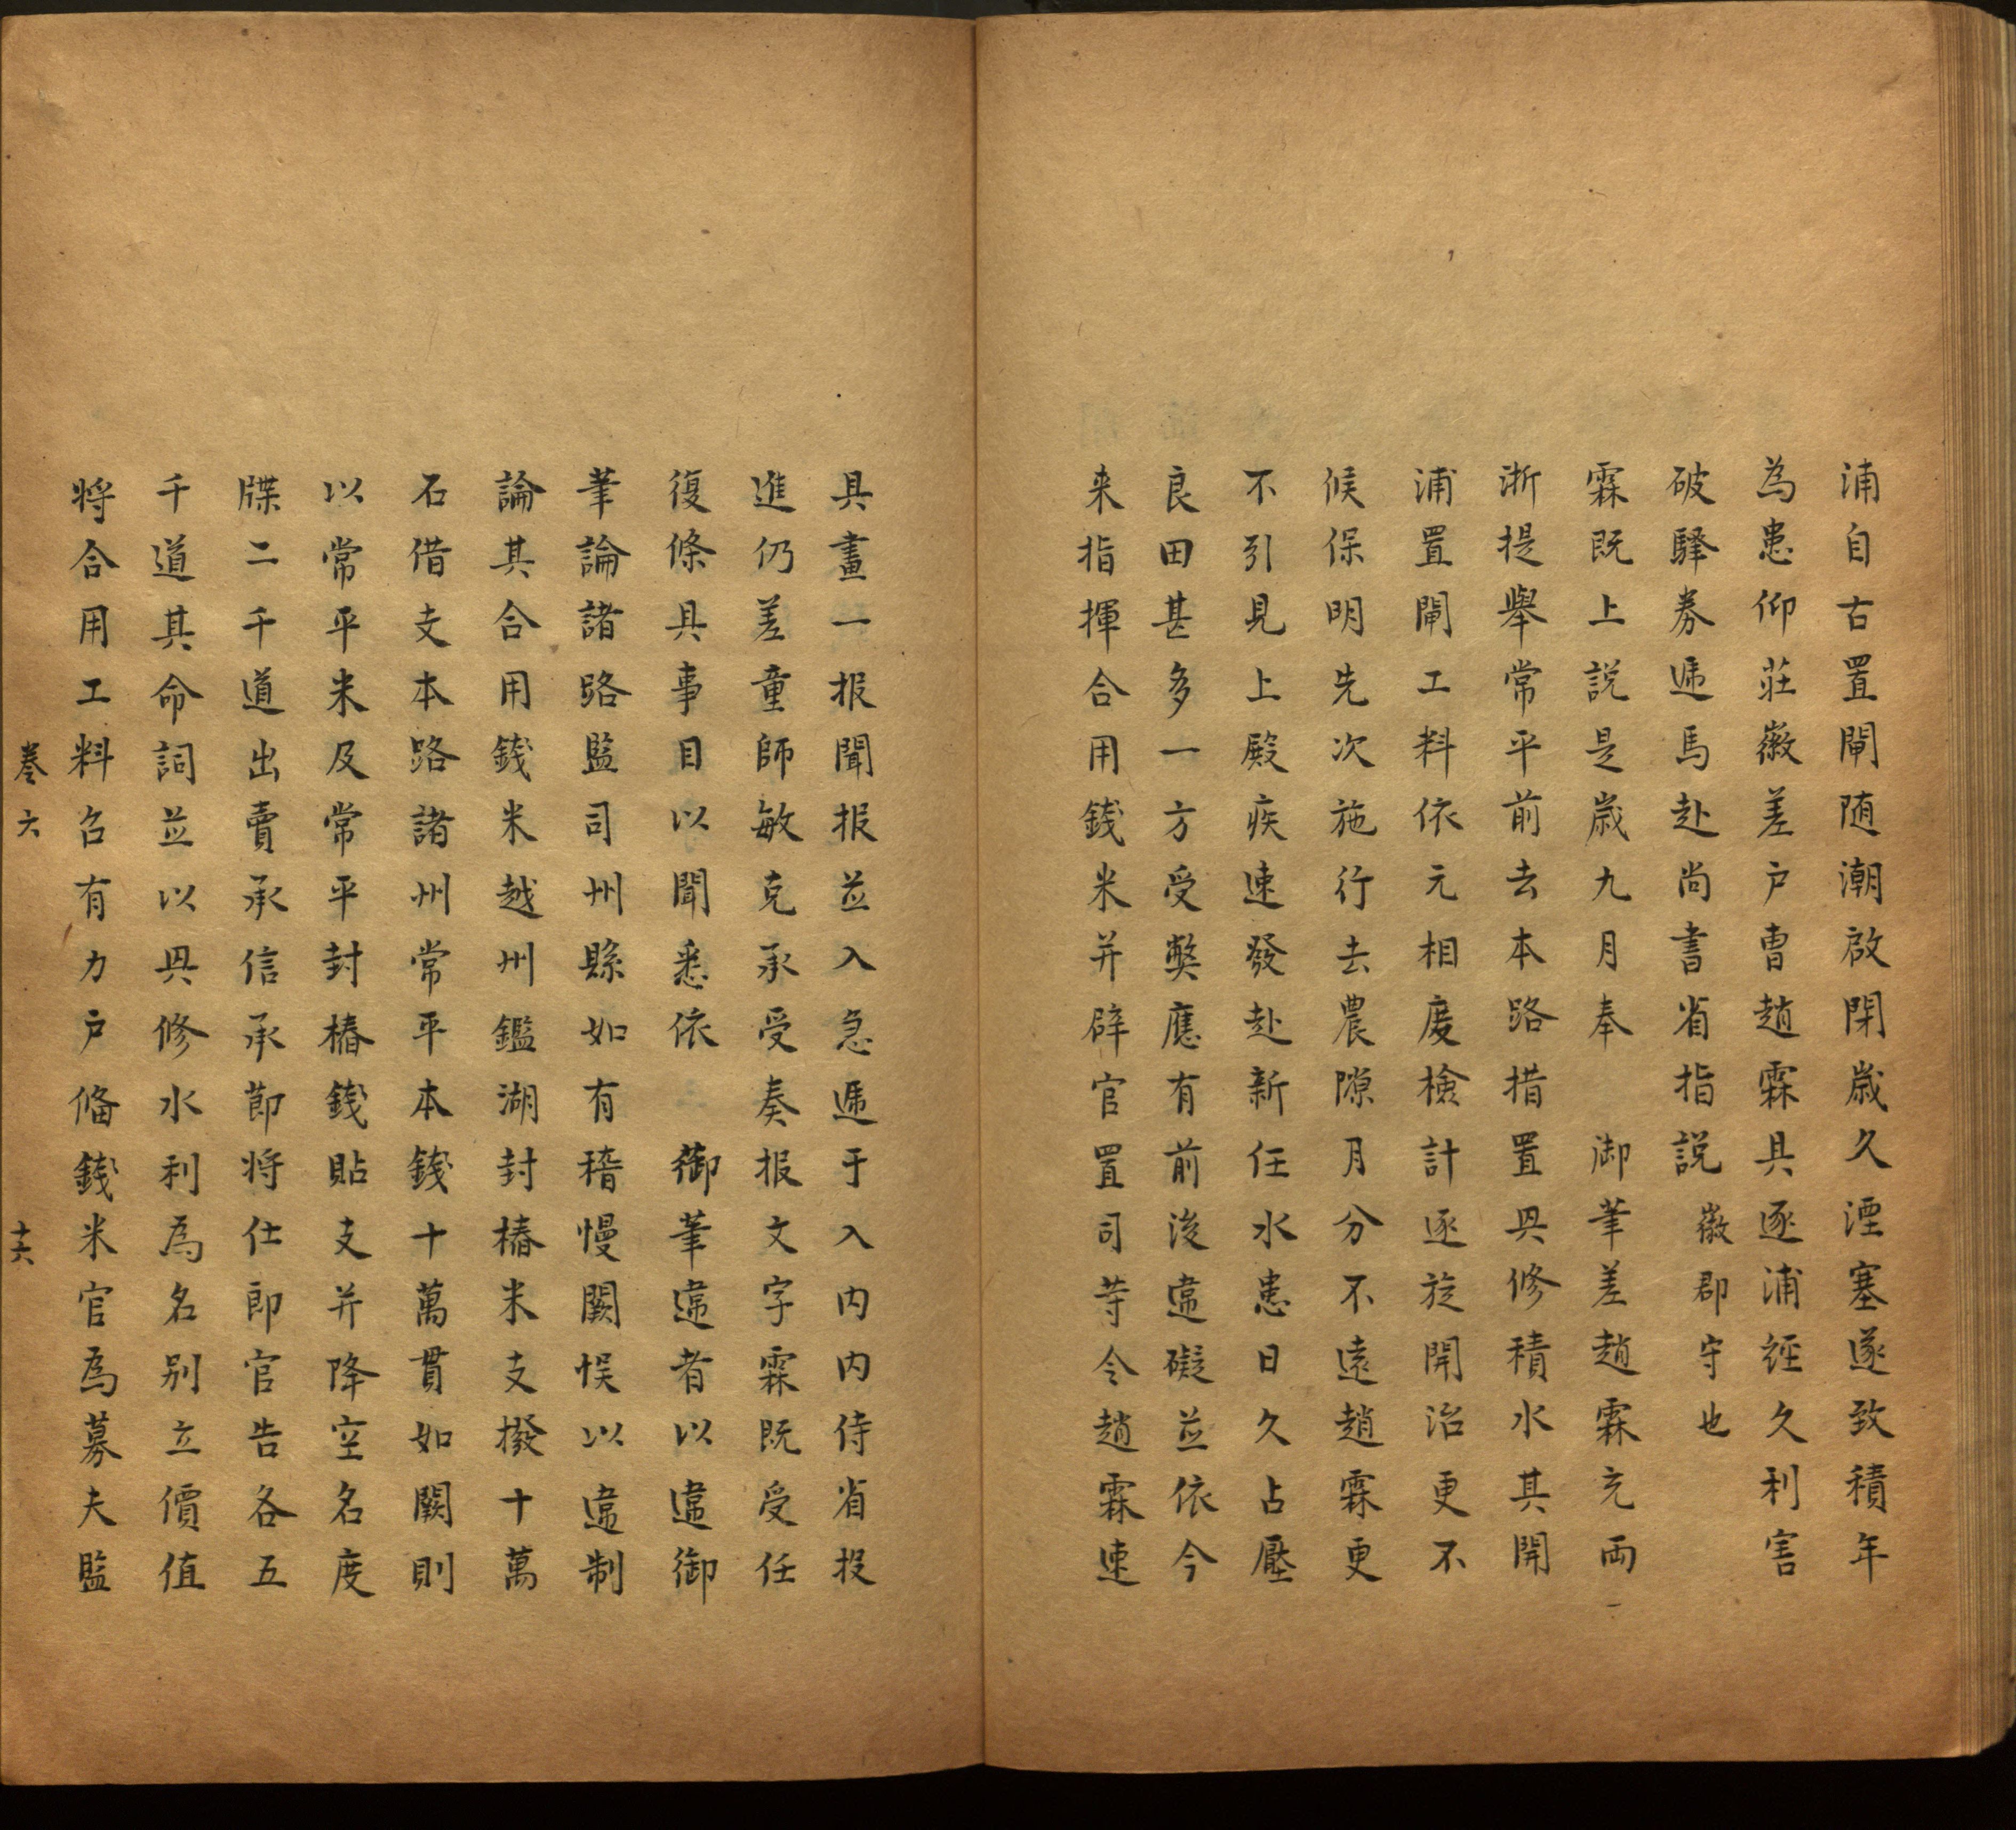 浦自古置閘随潮啟閉歲久湮塞遂致積年
為患仰莊徽差户曹趙霖具逐浦經久利害
破驛券遞馬赴尚書省指説徽郡守也
霖既上説是歲九月奉　御筆差趙霖充両
浙提舉常平前去本路措置興修積水其開
浦置閘工料依元相度檢計逐旋開治更不
候保明先次施行去農隙月分不遠趙霖更
不引見上殿疾速發赴新任水患日久占壓
良田甚多一方受獘應有前後違礙並依今
来指揮合用錢米并辟官置司等令趙霖速
具畫一报聞报並入急遞于入内内侍省投
進仍差童師敏克承受奏报文字霖既受任
復條具事目以聞悉依　御筆違者以違御
筆論諸路監司州縣如有稽慢闕悮以違制
論其合用錢米越州鑑湖封樁米支撥十萬
石借支本路諸州常平本錢十萬貫如闕則
以常平米及常平封樁錢貼支并降空名度
牒二千道出賣承信承節将仕郎官告各五
千道其命詞並以興修水利為名別立價值
将合用工料召有力户俻錢米官為募夫監
卷六
十六